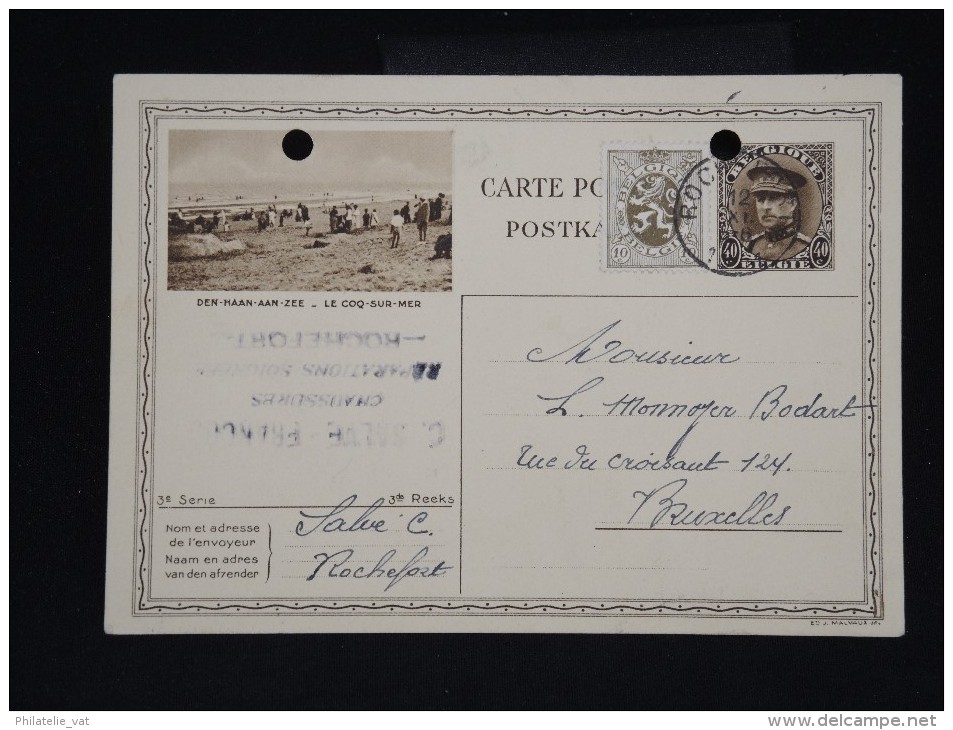 BELGIQUE
BELGIE
10
CARTE PO
POSTKA
BELGIQUE
40 c
40 c
BELGIE
ROC
12
XI
DEN-HAAN-AAN-ZEE - LE COQ-SUR-MER
- ROCHEFORT -
RÉPARATIONS SOIGNÉES
CHAUSSURES
Monsieur
L. Monnoyer Bodart
rue du croissant 124.
Bruxelles
3e Serie
3de Reeks
Nom et adresse
de l'envoyeur
Naam en adres
van den afzender
Salve C.
Rochefort
ED. J. MALVAUX JR.
Philatelie_vat
www.delcampe.net